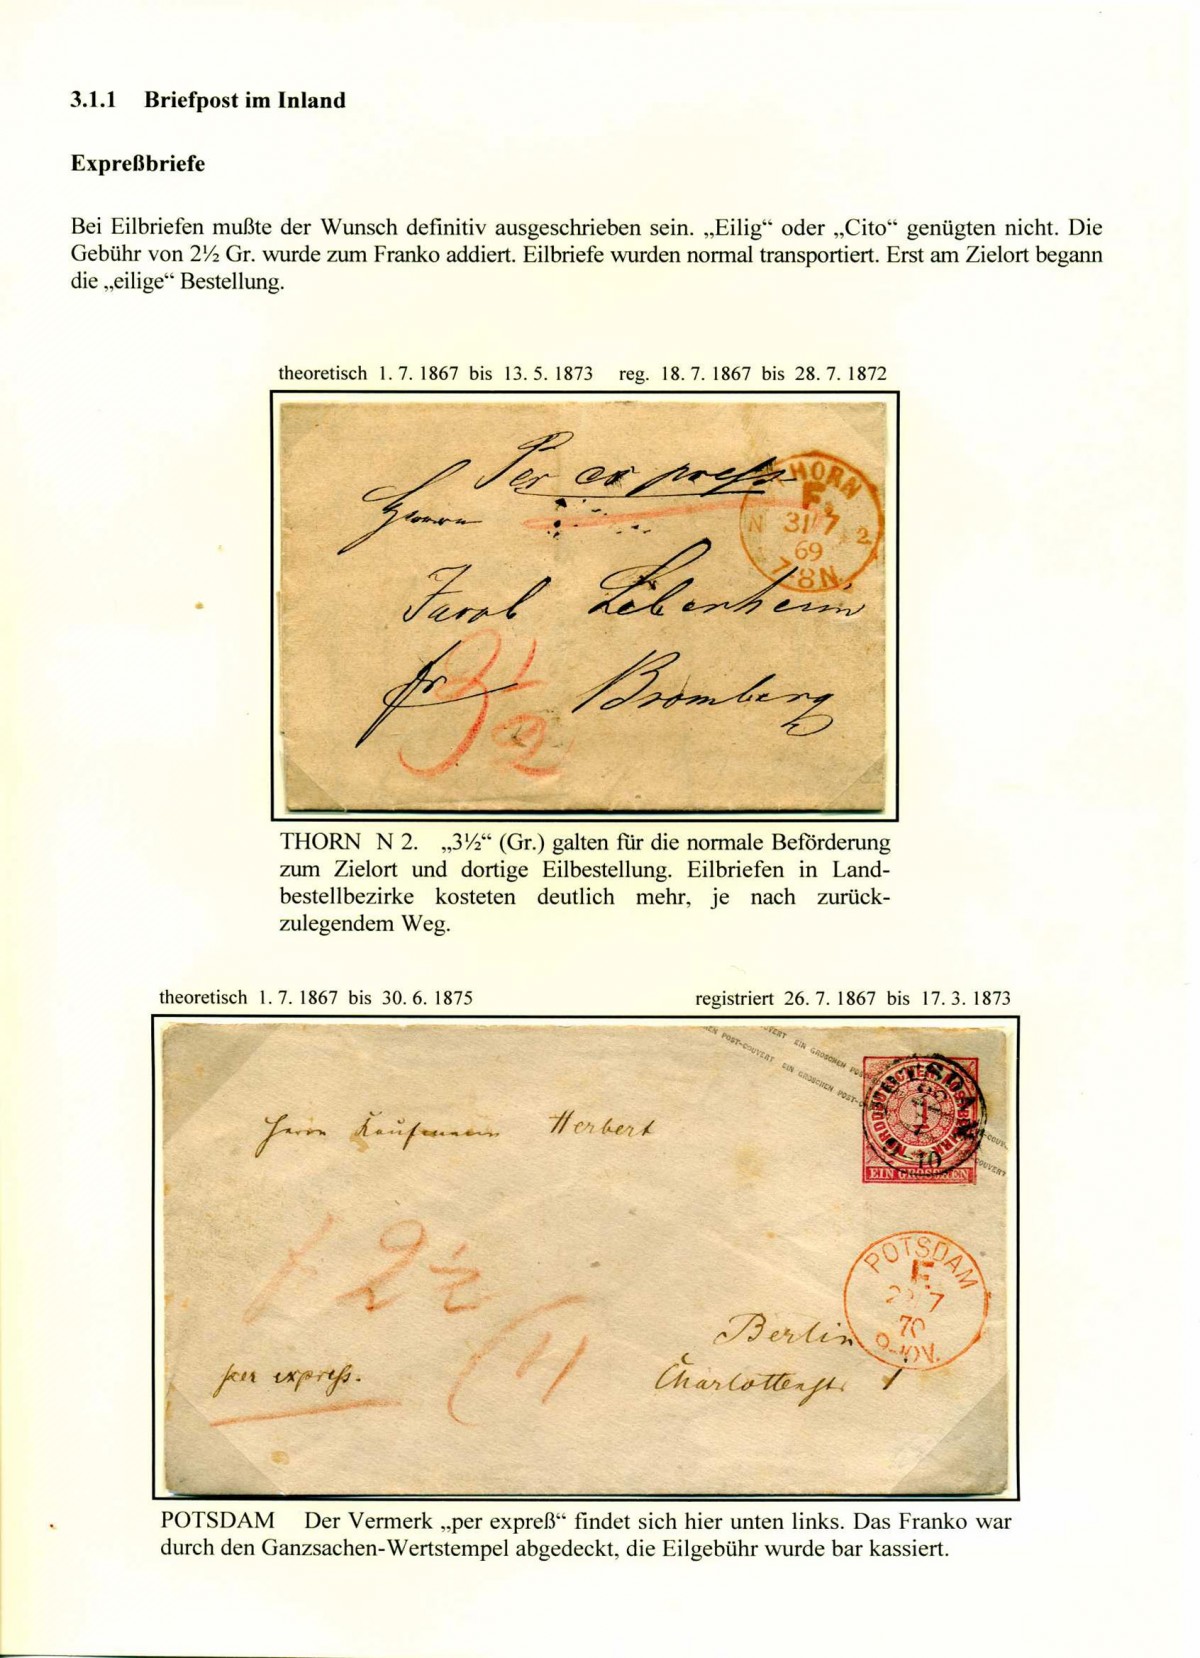 3.1.1 Briefpost im Inland
Expreßbriefe
Bei Eilbriefen mußte der Wunsch definitiv ausgeschrieben sein. „Eilig“ oder „Cito“ genügten nicht. Die
Gebühr von 2½ Gr. wurde zum Franko addiert. Eilbriefe wurden normal transportiert. Erst am Zielort begann
die „eilige“ Bestellung.
theoretisch 1. 7. 1867 bis 13. 5. 1873 reg. 18. 7. 1867 bis 28. 7. 1872
Per express
THORN
F.
N 31/7 2
69
7-8 N.
Herrn
Jacob
fr Bromberg
3½
THORN N 2. „3½“ (Gr.) galten für die normale Beförderung
zum Zielort und dortige Eilbestellung. Eilbriefen in Land-
bestellbezirke kosteten deutlich mehr, je nach zurück-
zulegendem Weg.
theoretisch 1. 7. 1867 bis 30. 6. 1875 registriert 26. 7. 1867 bis 17. 3. 1873
POST-COUVERT EIN GROSCHEN
EIN GROSCHEN POST-COUVERT
1
EIN GROSCHEN
Herrn Kaufmann Herbert
f 2½
POTSDAM
F.
70
9-10 V.
Berlin
per expreß. Charlottenstr 1
POTSDAM Der Vermerk „per expreß“ findet sich hier unten links. Das Franko war
durch den Ganzsachen-Wertstempel abgedeckt, die Eilgebühr wurde bar kassiert.